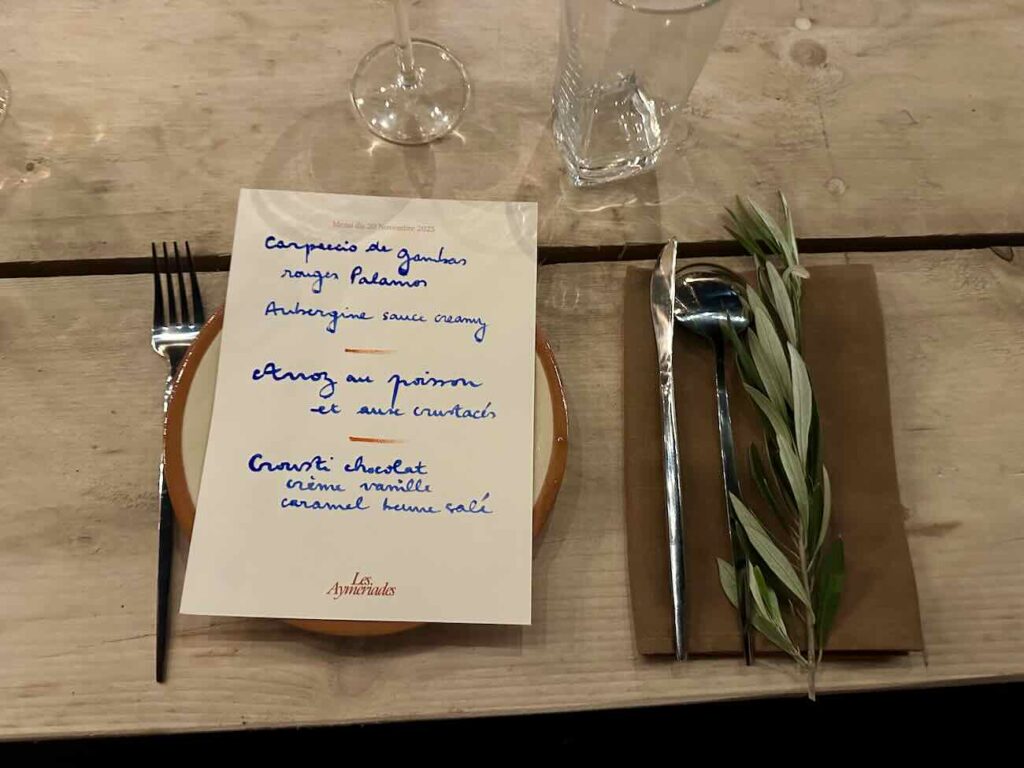 Menu du 20 Novembre 2025
Carpaccio de gambas
rouges Palamos
Aubergine sauce creamy
Arroz au poisson
et aux crustacés
Crousti chocolat
crème vanille
caramel beurre salé
Les
Aymeriades